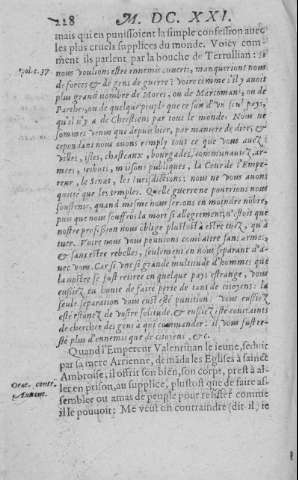 218 M. DC. XXI.
mais qui en punissoient la simple confession auec
les plus cruels supplices du monde. Voicy com-
ment ils parlent par la bouche de Tertullian: Si
nous voulions estre ennemis couuerts, manquerions nous
de forces & de gens de guerre? voire comme s'il y auoit
plus grand nombre de Mores, ou de Marcomans, ou de
Parthes, ou de quelque peuple que ce soit d'vn seul pays,
qu'il n'y a de Chrestiens par tout le monde. Nous ne
sommes venus que depuis hier, par maniere de dire, &
cependant nous auons remply tout ce que vous auez:
villes, isles, chasteaux, bourgades, communautez, ar-
mees, tributs, maisons publiques, la Cour de l'Empe-
reur, le Senat, les iurisdictions: nous ne vous auons
quitté que les temples. Quelle guerre ne pourrions nous
soustenir, quand mesme nous serions en moindre nobre,
puis que nous souffrōs la mort si allegrement, n'estoit que
nostre profession nous oblige plustost à estre tuez, qu'à
tuer. Voire nous vous pouuions combatre sans armes,
& sans estre rebelles, seulement en nous separant d'a-
uec vous. Car si vne si grande multitude d'hommes que
la nostre se fust retiree en quelque pays estrange, vous
eussiez eu honte de faire perte de tant de citoyens: la
seule separation vous eust esté punition: vous eussiez
esté estonnez de vostre solitude, & eussiez esté contraints
de chercher des gens à qui commander: il vous fust re-
sté plus d'ennemis que de citoyens, &c.
Quand l'Empereur Valentinian le ieune, seduit
par sa mere Arrienne, demāda les Eglises à sainct
Ambroise, il offrit son bien, son corps, prest à al-
ler en prison, au supplice, plustost que de faire as-
sembler ou amas de peuple pour resister comme
il le pouuoit: Me veut on contraindre (dit il) ie
Orat. contr.
Auxent.